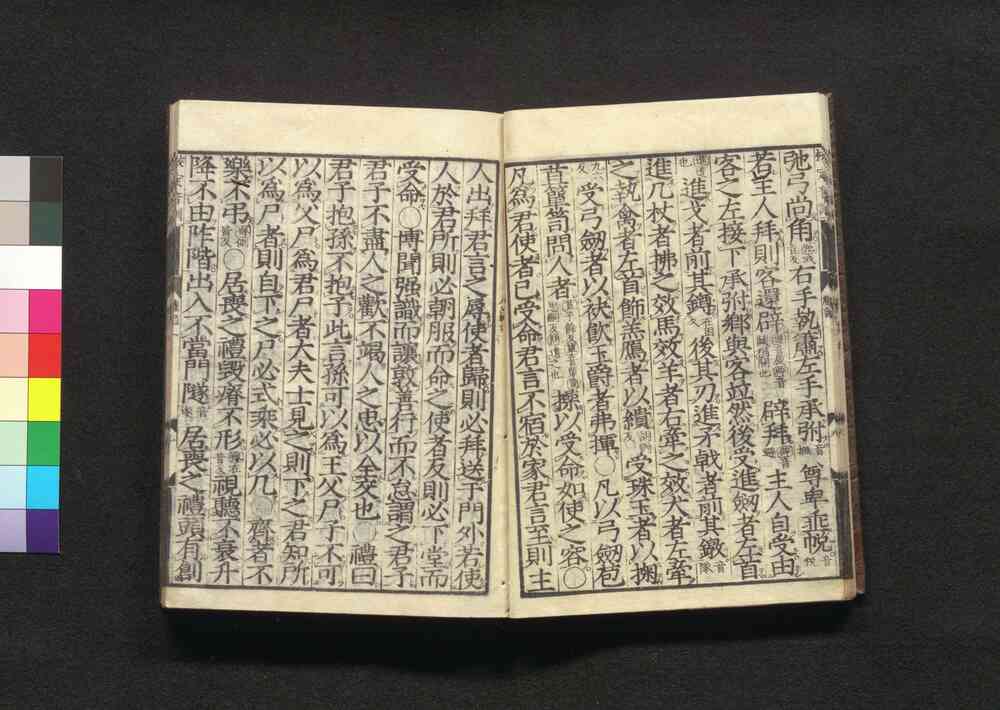 弛弓尚角右手執簫左手承弣尊卑垂帨
若主人拜則客還辟辟拜主人自受由
客之左接下承弣鄉與客竝然後受進劒者左首
進戈者前其鐏後其刃進矛戟者前其鐓
進几杖者拂之效馬效羊者右牽之效犬者左牽
之執禽者左首飾羔鴈者以繢受珠玉者以掬
受弓劒者以袂飮玉爵者弗揮〇凡以弓劒苞
苴簞笥問人者操以受命如使之容〇
凡爲君使者已受命君言不宿於家君言至則主
人出拜君言之辱使者歸則必拜送于門外若使
人於君所則必朝服而命之使者反則必下堂而
受命〇博聞强識而讓敦善行而不怠謂之君子
君子不盡人之歡不竭人之忠以全交也〇禮曰
君子抱孫不抱子此言孫可以爲王父尸子不可
以爲父尸爲君尸者大夫士見之則下之君知所
以爲尸者則自下之尸必式乘必以几〇齊者不
樂不弔〇居喪之禮毀瘠不形視聽不衰升
降不由阼階出入不當門隧居喪之禮頭有創